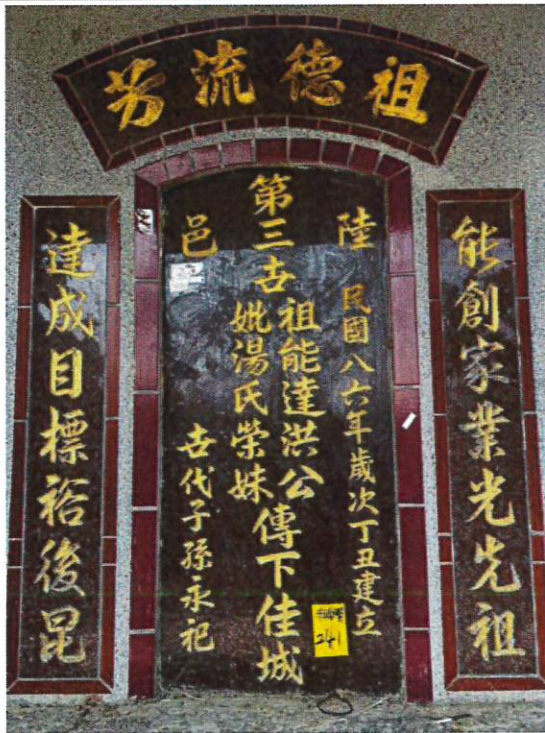 祖德流芳
能創家業光先祖
陸 民國八六年歲次丁丑建立
第三世祖能達洪公
妣湯氏榮妹
傳下佳城
邑 世代子孫永祀
達成目標裕後昆
241